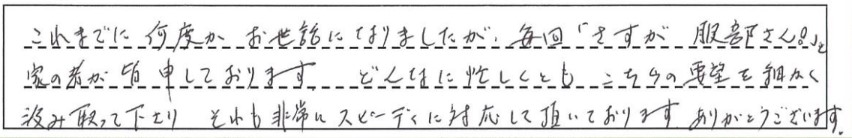 これまでに何度かお世話になりましたが、毎回「さすが服部さん!」と
家の者が皆申しております。どんなに忙しくともこちらの要望を細かく
汲み取って下さり それも非常にスピーディに対応して頂いております ありがとうございます.